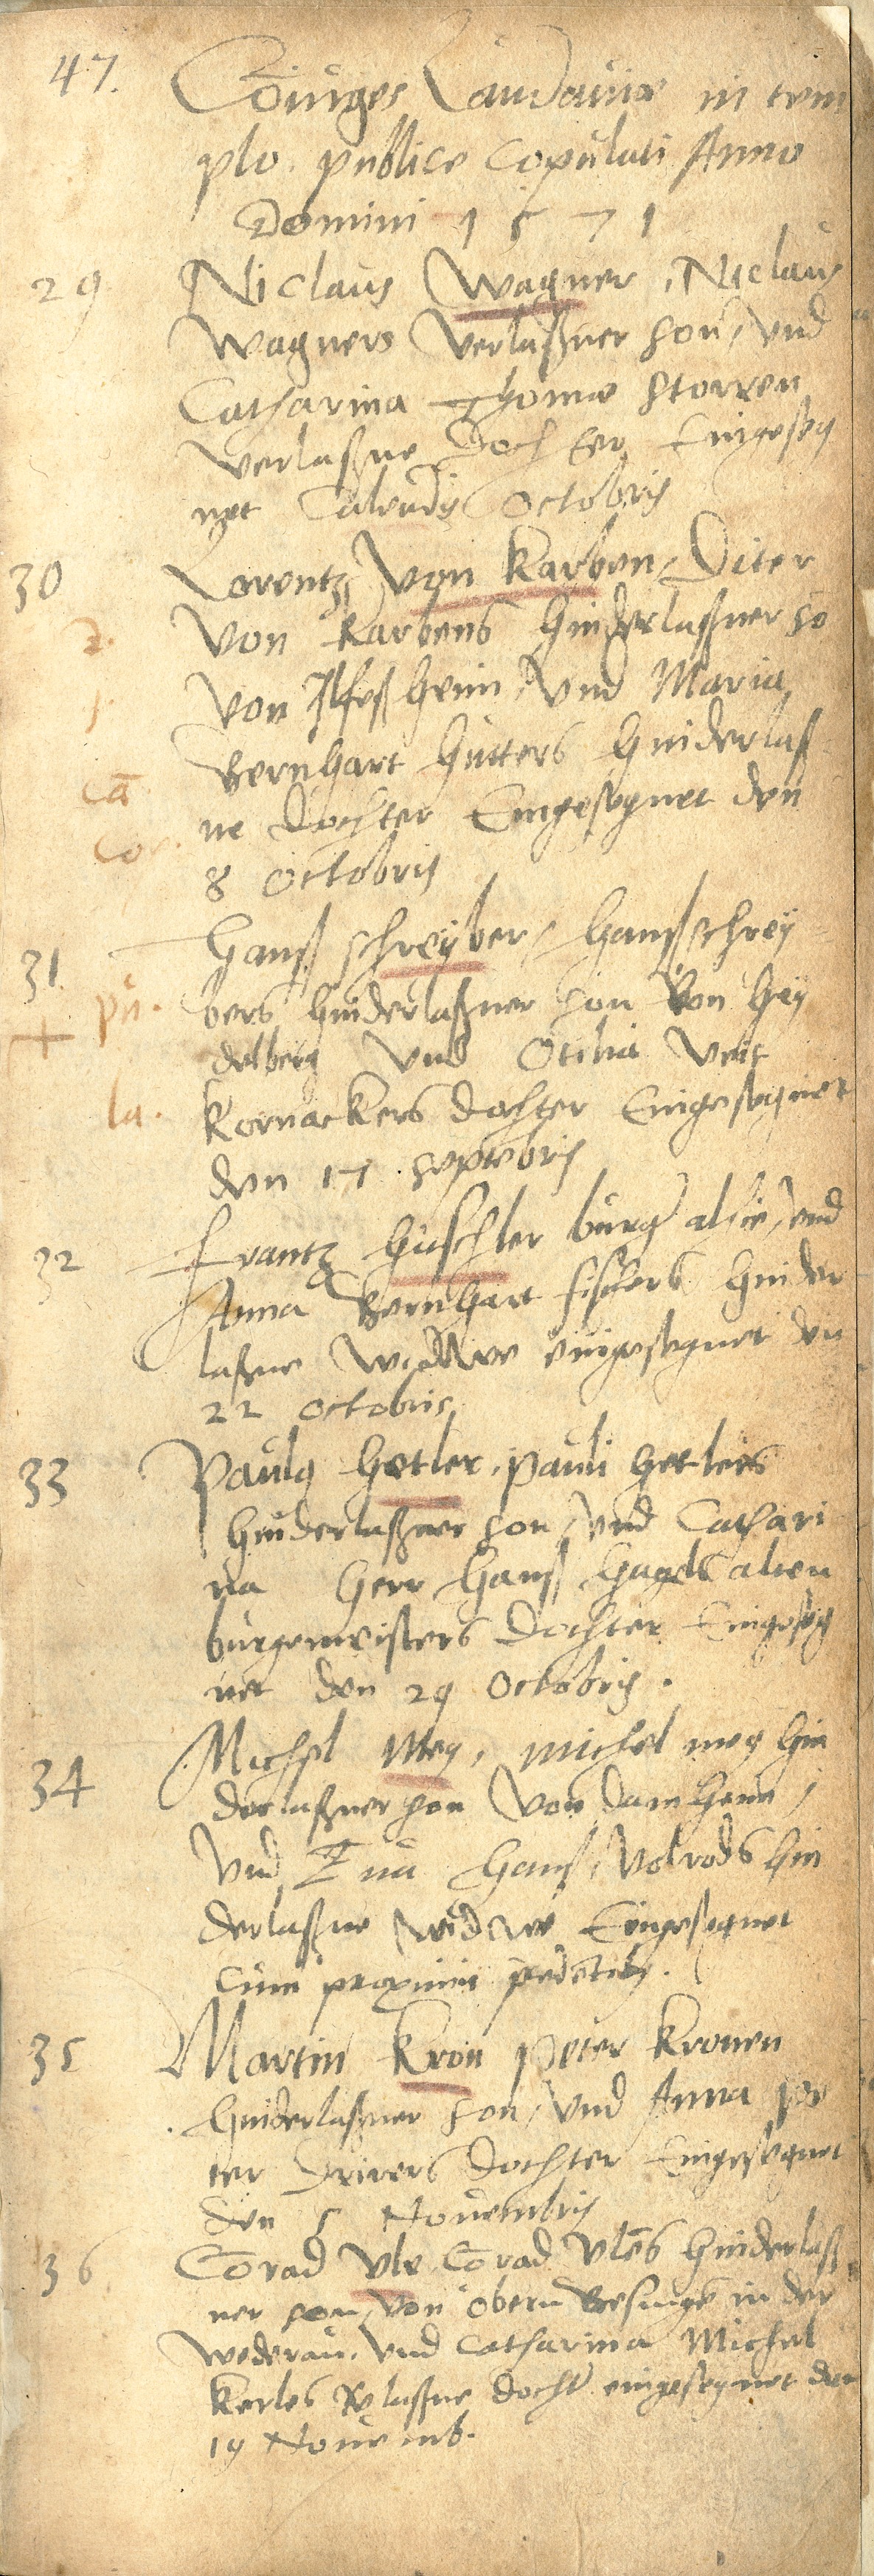 47.
Coniuges Landauiæ in tem
plo publice copulati Anno
Domini 1571
29 Niclaus Wagner, Niclaus
Wagners verlaßner son, vnd
Catharina Thomæ Storren
verlaßne Dochter Eingeseg
net Calendis Octobris
30 Lorentz von Karben, Diter
von Karbens hinderlaßner so
von Ilfesheim, vnd Maria,
Bernhart Hütters hinderlaß
ne Dochter Eingesegnet den
8 Octobris
31 Hanß schreyber, Hanß schrey
bers hinderlaßner son von Hey
delberg vnd Otilia Veit
Kornackers dochter Eingesegnet
den 17 septebris
32 Frantz Huschler burger alhie, vnd
Anna Bernhart fischers hinder
laßne widwe eingesegnet den
22 octobris
33 Paulg Hetler, pauli Hetlers
hinderlaßner son, vnd Cathari
na Herr Hanß Hagels alten
burgemeisters Dochter Eingeseg
net den 29 Octobris.
34 Michel Mey, Michel mey hin
derlaßner son von damheim,
vnd Eua Hanß Volrods hin
derlaßne widwe Eingesegnet
cum proximis
35 Martin Kron Peter Kronen
hinderlaßner son, vnd Anna pe
ter Drivers dochter Eingesegnet
den 5 Nouembris
36 Corad Vle Corad Vles hinderlaß
ner son, von obern in der
wederau. vnd Catharina Michel
Kerles laßne docht eingesegnet den
19 Nouemb.
2.
1
ca
cor.
pu.
+
la.